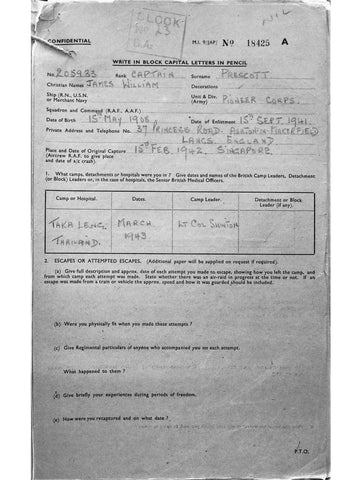 NIL
BLOCK
CONFIDENTIAL
M.I. 9/JAP/ No 18425 A
WRITE IN BLOCK CAPITAL LETTERS IN PENCIL
No. 205933 Rank CAPTAIN Surname PRESCOTT.
Christian Names JAMES WILLIAM Decorations
Ship (R.N., U.S.N. or Merchant Navy Unit & Div. (Army) PIONEER CORPS.
Squadron (R.A.F., A.A.F.)
Date of Birth 15th MAY 1908, Date of Enlistment 15th SEPT. 1941.
Private Address and Telephone No. 37 PRINCESS ROAD. ASHTON-IN-MAKERFIELD
LANCS. ENGLAND
Place and Date of Original Capture 15th FEB. 1942. SINGAPORE.
(Aircrew R.A.F. to give place and date of a/c crash).
1. What camps, detachments or hospitals were you in? Give dates and names of the British Camp Leaders, Detachment (or Block) Leaders or, in the case of hospitals, the Senior British Medical Officers.
Camp or Hospital. Dates. Camp Leader. Detachment or Block Leader (if any).
TAKA LENG, MARCH LT COL
THAILAND. 1943.
2. ESCAPES OR ATTEMPTED ESCAPES. (Additional paper will be supplied on request if required).
(a) Give full description and approx. date of each attempt you made to escape, showing how you left the camp, and
from which camp each attempt was made. State whether there was an air-raid in progress at the time or not. If an
escape was made from a train or vehicle the approx. speed and how it was guarded should be included.
(b) Were you physically fit when you made these attempts?
(c) Give Regimental particulars of anyone who accompanied you on each attempt.
What happened to them?
(d) Give briefly your experiences during periods of freedom.
(e) How were you recaptured and on what date?
P.T.O.